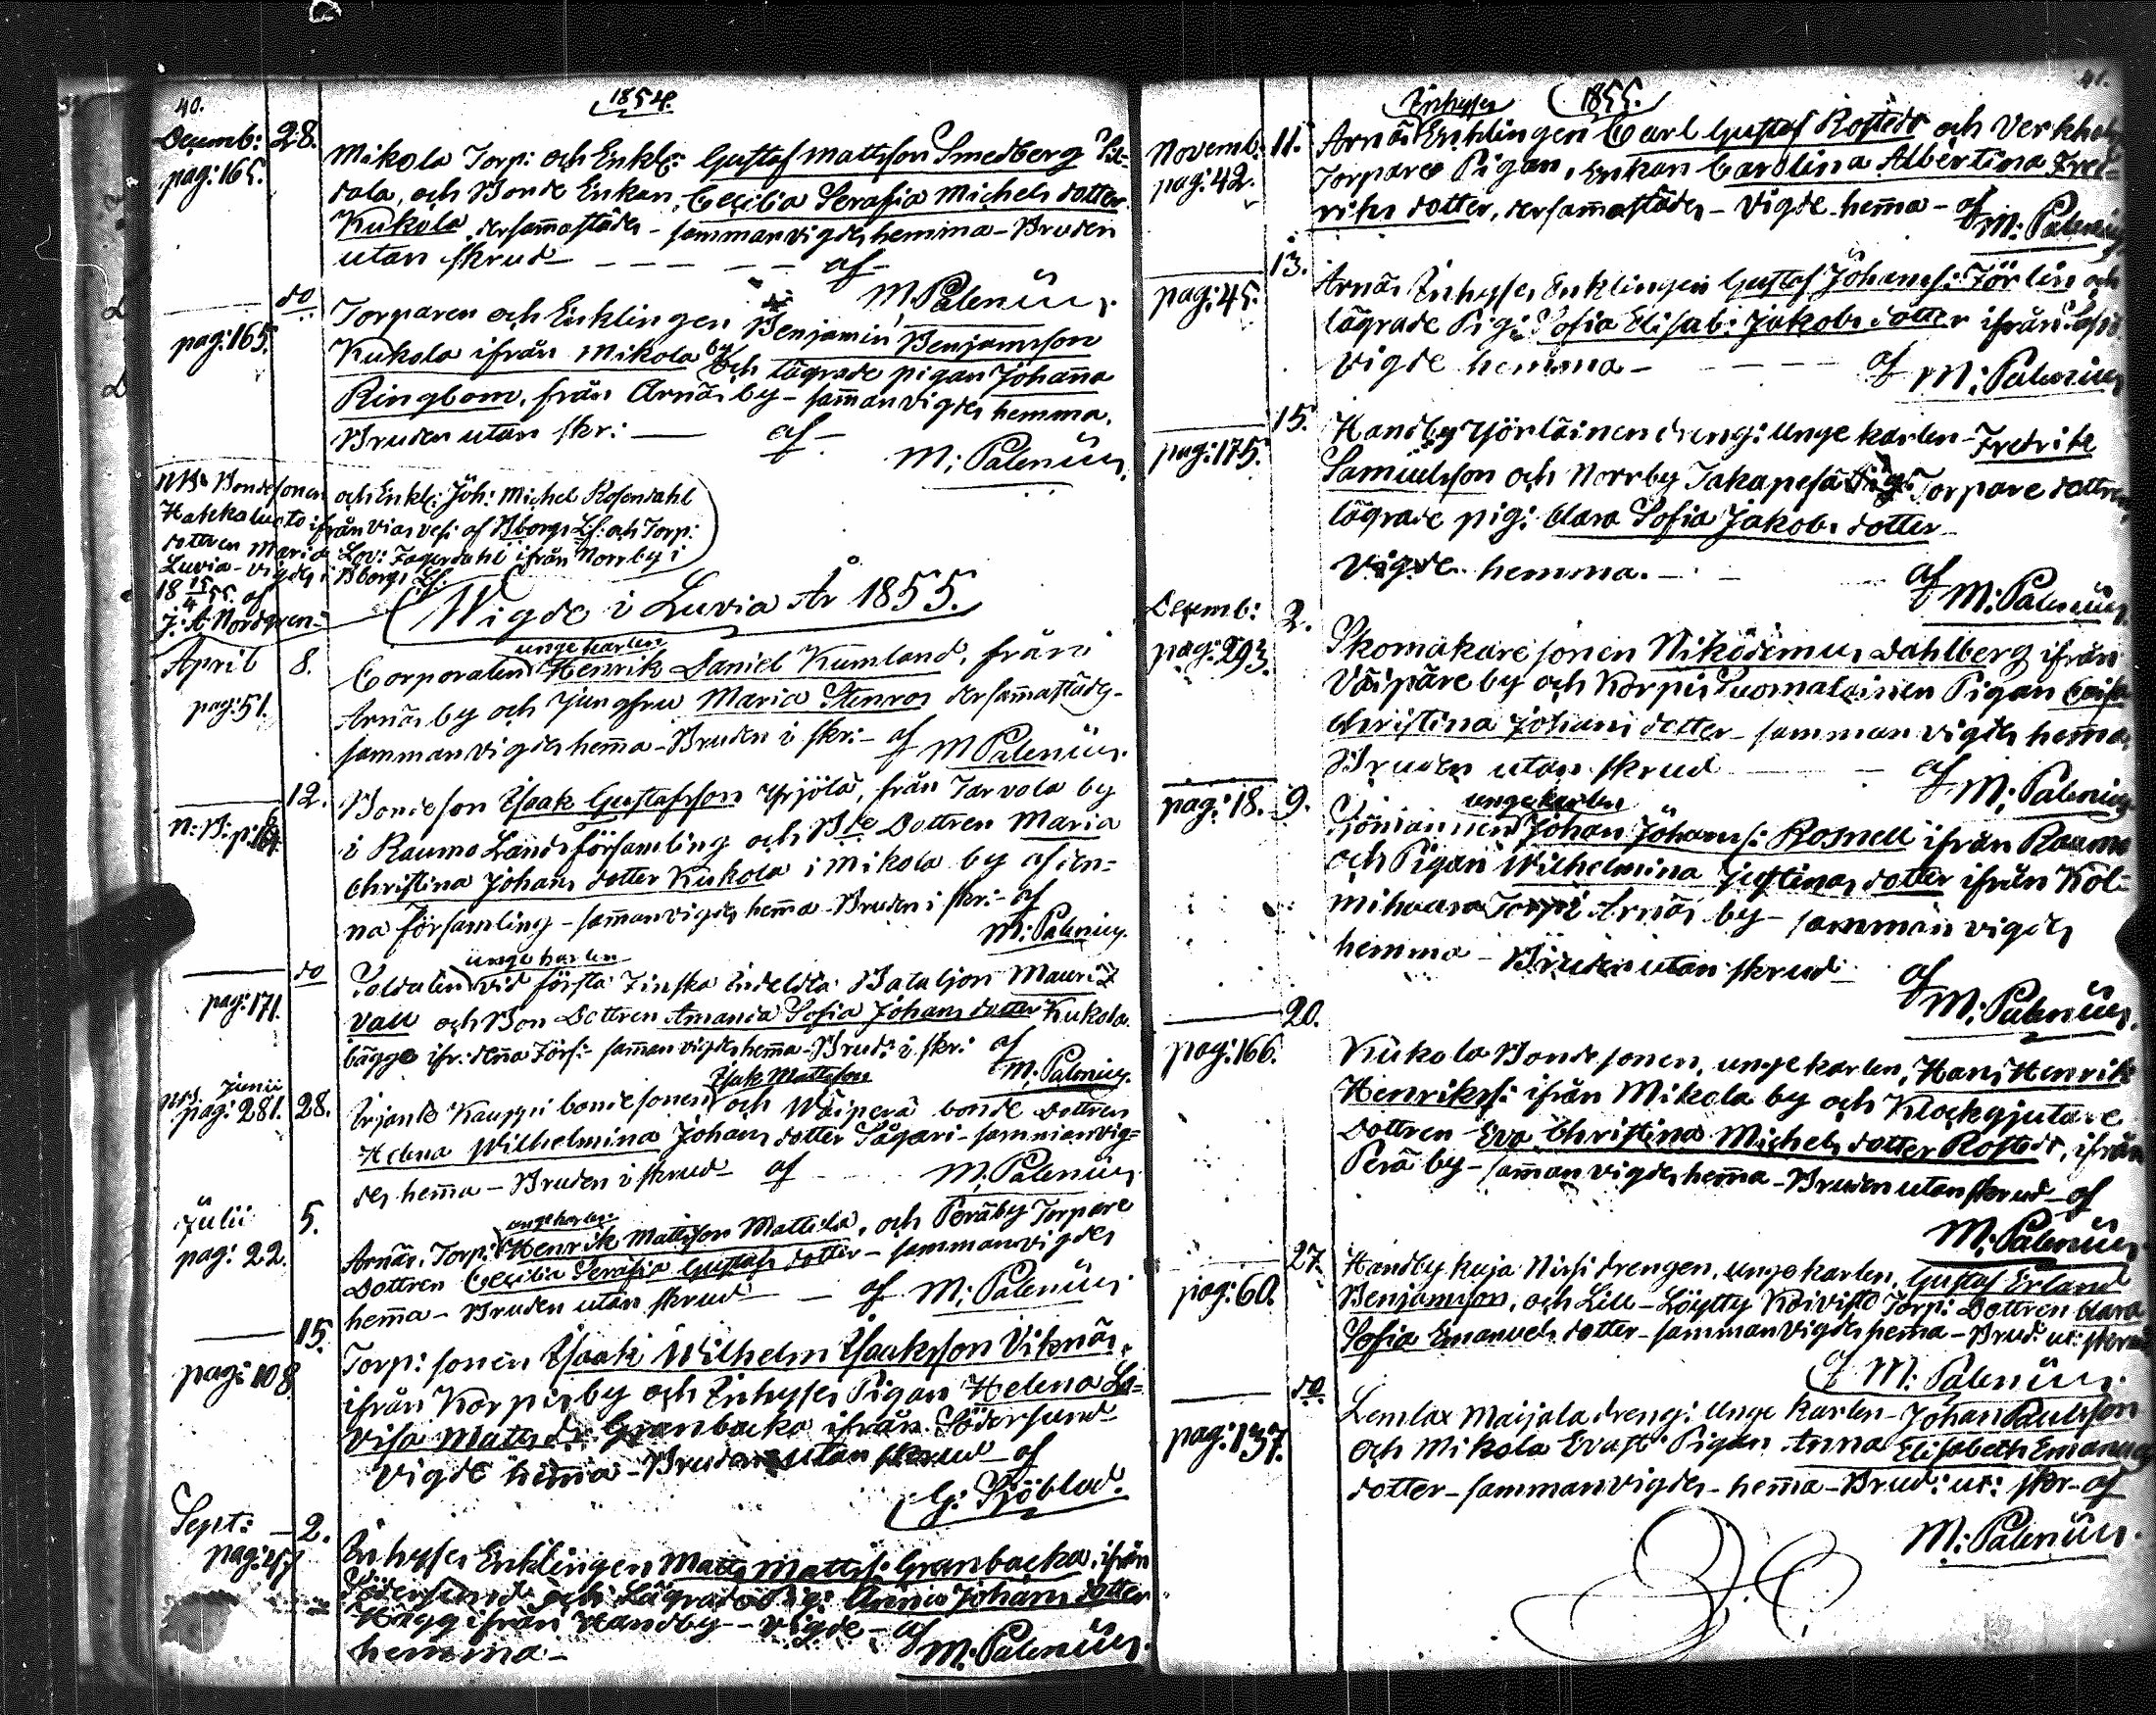 40.
1854.
Decemb: 28.
pag: 165.
Mikola Torp: och Enkl: Gustaf Mattsson Smedberg
dala, och Bonde Enkan, Cecilia Serafia Michels dotter
Kukola dersammastädes - sammanvigdes hemma - Bruden
utan skrud - - - - - af -
M. Palenius.
do
pag: 165.
Torparen och Enklingen Benjamin Benjamsson
Kukola ifrån Mikola by och lägrade pigan Johanna
Ringbom, från Arnäs by - sammanvigdes hemma.
Bruden utan skr: — af -
M: Palenius.
NB. Bondesonen och Enkl: Joh: Michel Rosendahl
Hakkaluoto ifrån Vias ves: af Bborgs Lf: och Torp:
dottren Maria Lov: Fagerdahl ifrån Norrby i
Luvia - vigdes i Bborgs Lf:
18 15/4 55. af
J: A Nordgren -
Wigde i Luvia År 1855.
April 8.
pag: 51.
unge karlen
Corporalen Henrik Daniel Kumland, från
Arnäs by och Jungfru Maria Stenros dersammastädes -
sammanvigdes hemma - Bruden i skr: - af M Palenius.
12.
N: B: p: 164.
Bondeson Isaak Gustafsson Yrjölä, från Tarvola by
i Raumo Landsförsamling och Bde Dottren Maria
Christina Johans dotter Kukola i Mikola by af den-
na församling - sammanvigdes hemma - Bruden i skr: - af
M: Palenius.
do
pag: 171.
unge karlen
Soldaten vid första Finska Indelda Bataljon Mauritz
Vall och Bon Dottren Amanda Sofia Johans dotter Kukola.
bägge ifr: denna Förs: - sammanvigdes hemma - Brud: i skr: af
M: Palenius.
Junii
pag: 281. 28.
Isak Mattsson
Irjanto Kauppi bondesonen och Wäiperä bonde Dottren
Helena Wilhelmina Johans dotter Sågari - sammanvig=
des hemma - Bruden i skrud - af M: Palenius.
Julii 5.
pag: 22.
unge karlen
Arnäs Torp: Henrik Mattsson Mattila, och Peräby Torpare
Dottren Cecilia Serafia Gustafs dotter - sammanvigdes
hemma - Bruden utan skrud — af M: Palenius.
15.
pag: 108
Torp: sonen Isaak Wilhelm Isaaksson Viknäs,
ifrån Korpis by och Inhyses Pigan Helena Lo=
visa Matts d: Granbacka ifrån Södersund
Vigde hemma - Bruden utan skrud - af
G: Sjöblad.
Sept: - 2.
pag: 457
Inhyses Enklingen Matts Matts: Granbacka, ifrån
Södersund och Lägrade Pig: Annis Johans dotter
Hägg ifrån Handby - vigde - af
hemma - M: Palenius.
41.
1855.
Novemb: 11.
pag: 42.
Inhyses
Arnäs Enklingen Carl Gustaf Rostedt och Verkholm
Torpare Pigan, Enkan Carolina Albertina Fred=
riks dotter, dersammastädes - Vigde hemma - af
M: Palenius
13.
pag: 45.
Arnäs Inhyses Enklingen Gustaf Johans: Förlin och
lägrade Pig: Sofia Elisab: Jakobs dotter ifrån
Vigde hemma - - - - - af M: Palenius
15.
pag: 175.
Handby Yörläinen dreng: Unge karlen - Fredrik
Samuelsson och Norrby Takapesä Torpare dottren,
lägrade pig: Clara Sofia Jakobs dotter -
Vigde hemma. - - af
M: Palenius
Decemb: 2.
pag: 293.
Skomakare sonen Nikodemus Dahlberg ifrån
Väipäre by och Korpis Suomalainen Pigan Caisa
Christina Johans dotter - sammanvigdes hemma
Bruden utan skrud — - af
M: Palenius
pag: 18. 9.
unge karlen
Sjömannen Johan Johans: Rosnell ifrån Raumo
och Pigan Wilhelmina Justinas dotter ifrån Kol=
mihaara Torp i Arnäs by - sammanvigdes
hemma - Bruden utan skrud - af
M: Palenius.
20.
pag: 166.
Kukola Bondesonen, unge karlen, Hans Henrik
Henrikss: ifrån Mikola by och Klockgjutare
Dottren Eva Christina Michels dotter Rostedt, ifrån
Perä by - sammanvigdes hemma - Bruden utan skrud - af
M: Palenius
27.
pag: 60.
Handby kuja Nissi drengen, unge karlen, Gustaf Erland
Benjamsson, och Lill-Löytty Koivisto Torp: Dottren Clara
Sofia Emanuels dotter - sammanvigdes hemma - Brud: ut: skrud
af M: Palenius.
do
pag: 137.
Lemlax Maijala dreng: Unge karlen - Johan Paulsson
och Mikola Evast: Pigan Anna Elisabeth Emanuels
dotter - sammanvigdes - hemma - Brud: ut: skr - af
M: Palenius.